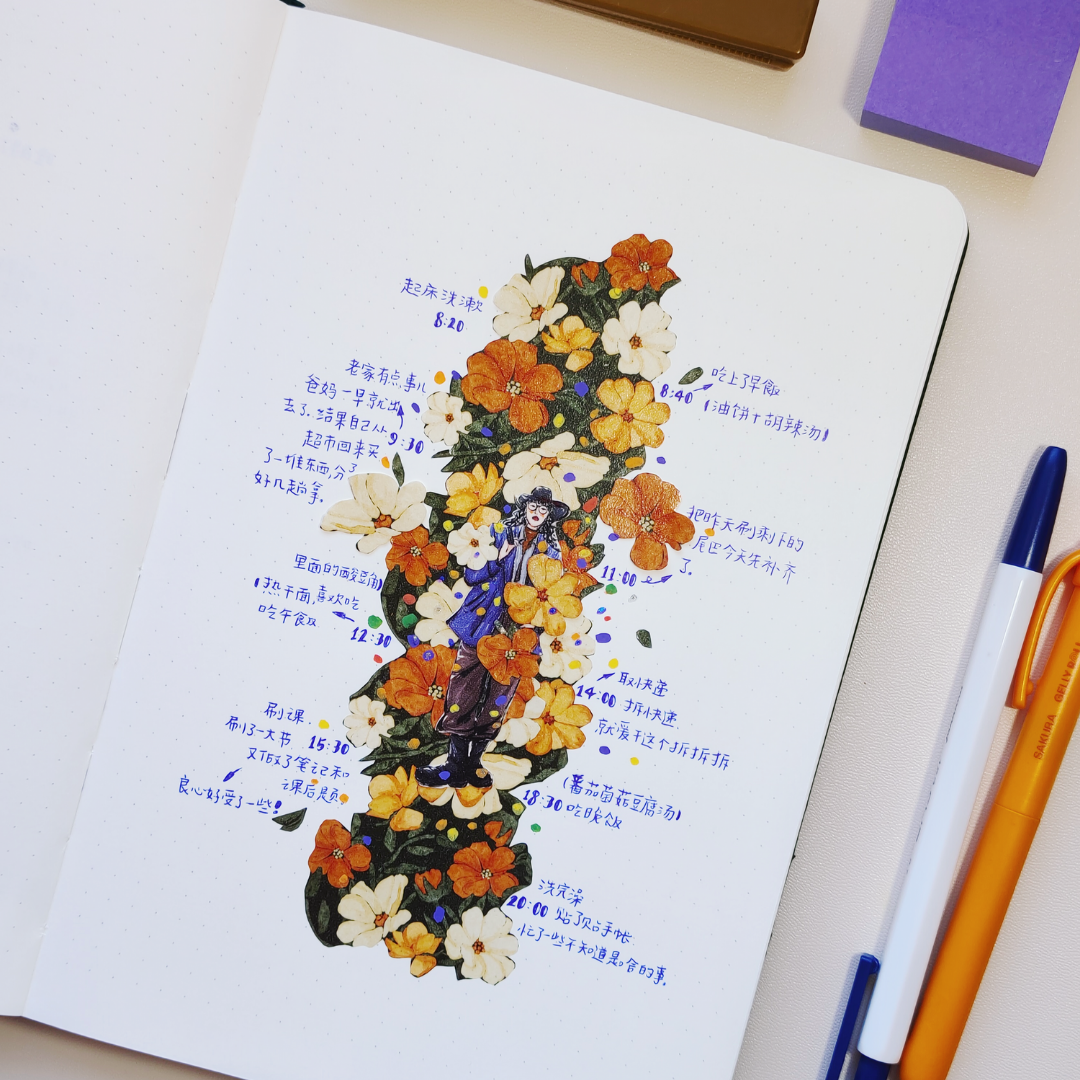 起床洗漱
8:20
8:40
吃上了早饭
(油饼+胡辣汤)
老家有点事儿
爸妈一早就出
去了.结果自己从
9:30
超市回来买
了一堆东西,分了
好几趟拿。
把昨天刷剩下的
尾巴今天先补齐
了。
11:00
里面的酸豆角
(热干面,喜欢吃
吃午饭
12:30
取快递
14:00 拆快递
就爱干这个拆拆拆
刷课
刷了一大节
15:30
又做了笔记和
课后题
良心好受了一些!
(番茄菌菇豆腐汤)
18:30 吃晚饭
洗完澡
20:00 贴了贴手帐
忙了一些不知道是啥的事。
SAKURA GELLY ROLL